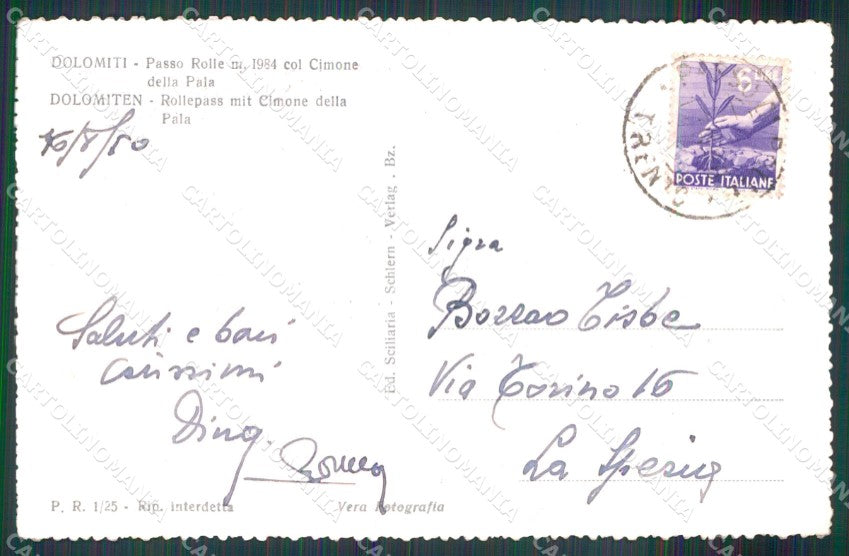 DOLOMITI - Passo Rolle m. 1984 col Cimone
della Pala
DOLOMITEN - Rollepass mit Cimone della
Pala
/8/50
Saluti e baci
carissimi
Dina
Ed. Sciliaria - Schlern - Verlag . Bz.
POSTE ITALIANE
TRENTO
Sigra
Bozzao Tisbe
Via Torino 16
La Spezia
P. R. 1/25 - Rip. interdetta
Vera Fotografia
CARTOLINOMANIA